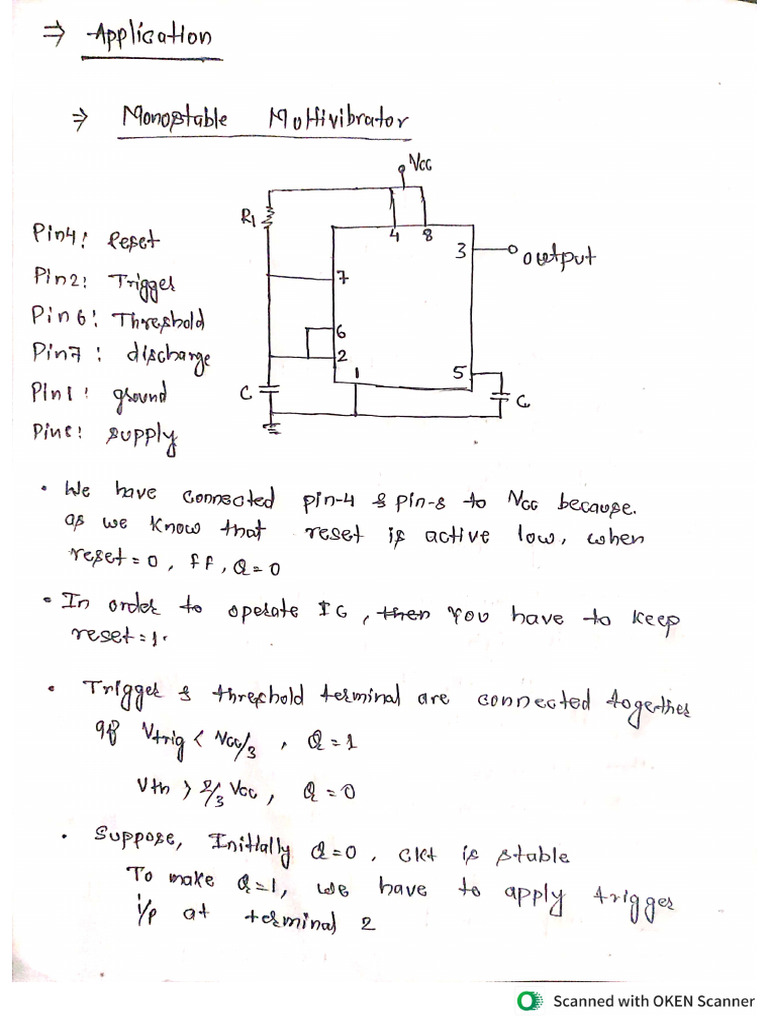 ⇒ Application
⇒ Monostable Multivibrator
Vcc
R1
4 8
3 output
Pin4: Reset
Pin2: Trigger
7
Pin6: Threshold
6
Pin7: discharge
2
1 5
Pin1: ground
C
C
Pin8: supply
• We have connected pin-4 & pin-8 to Vcc because.
as we know that reset is active low, when
reset=0, ff, Q=0
• In order to operate IC, then you have to keep
reset=1.
• Trigger & threshold terminal are connected together
If Vtrig < Vcc/3, Q=1
Vth > 2/3 Vcc, Q=0
• Suppose, Initially Q=0, ckt is stable
To make Q=1, we have to apply trigger
i/p at terminal 2
Scanned with OKEN Scanner